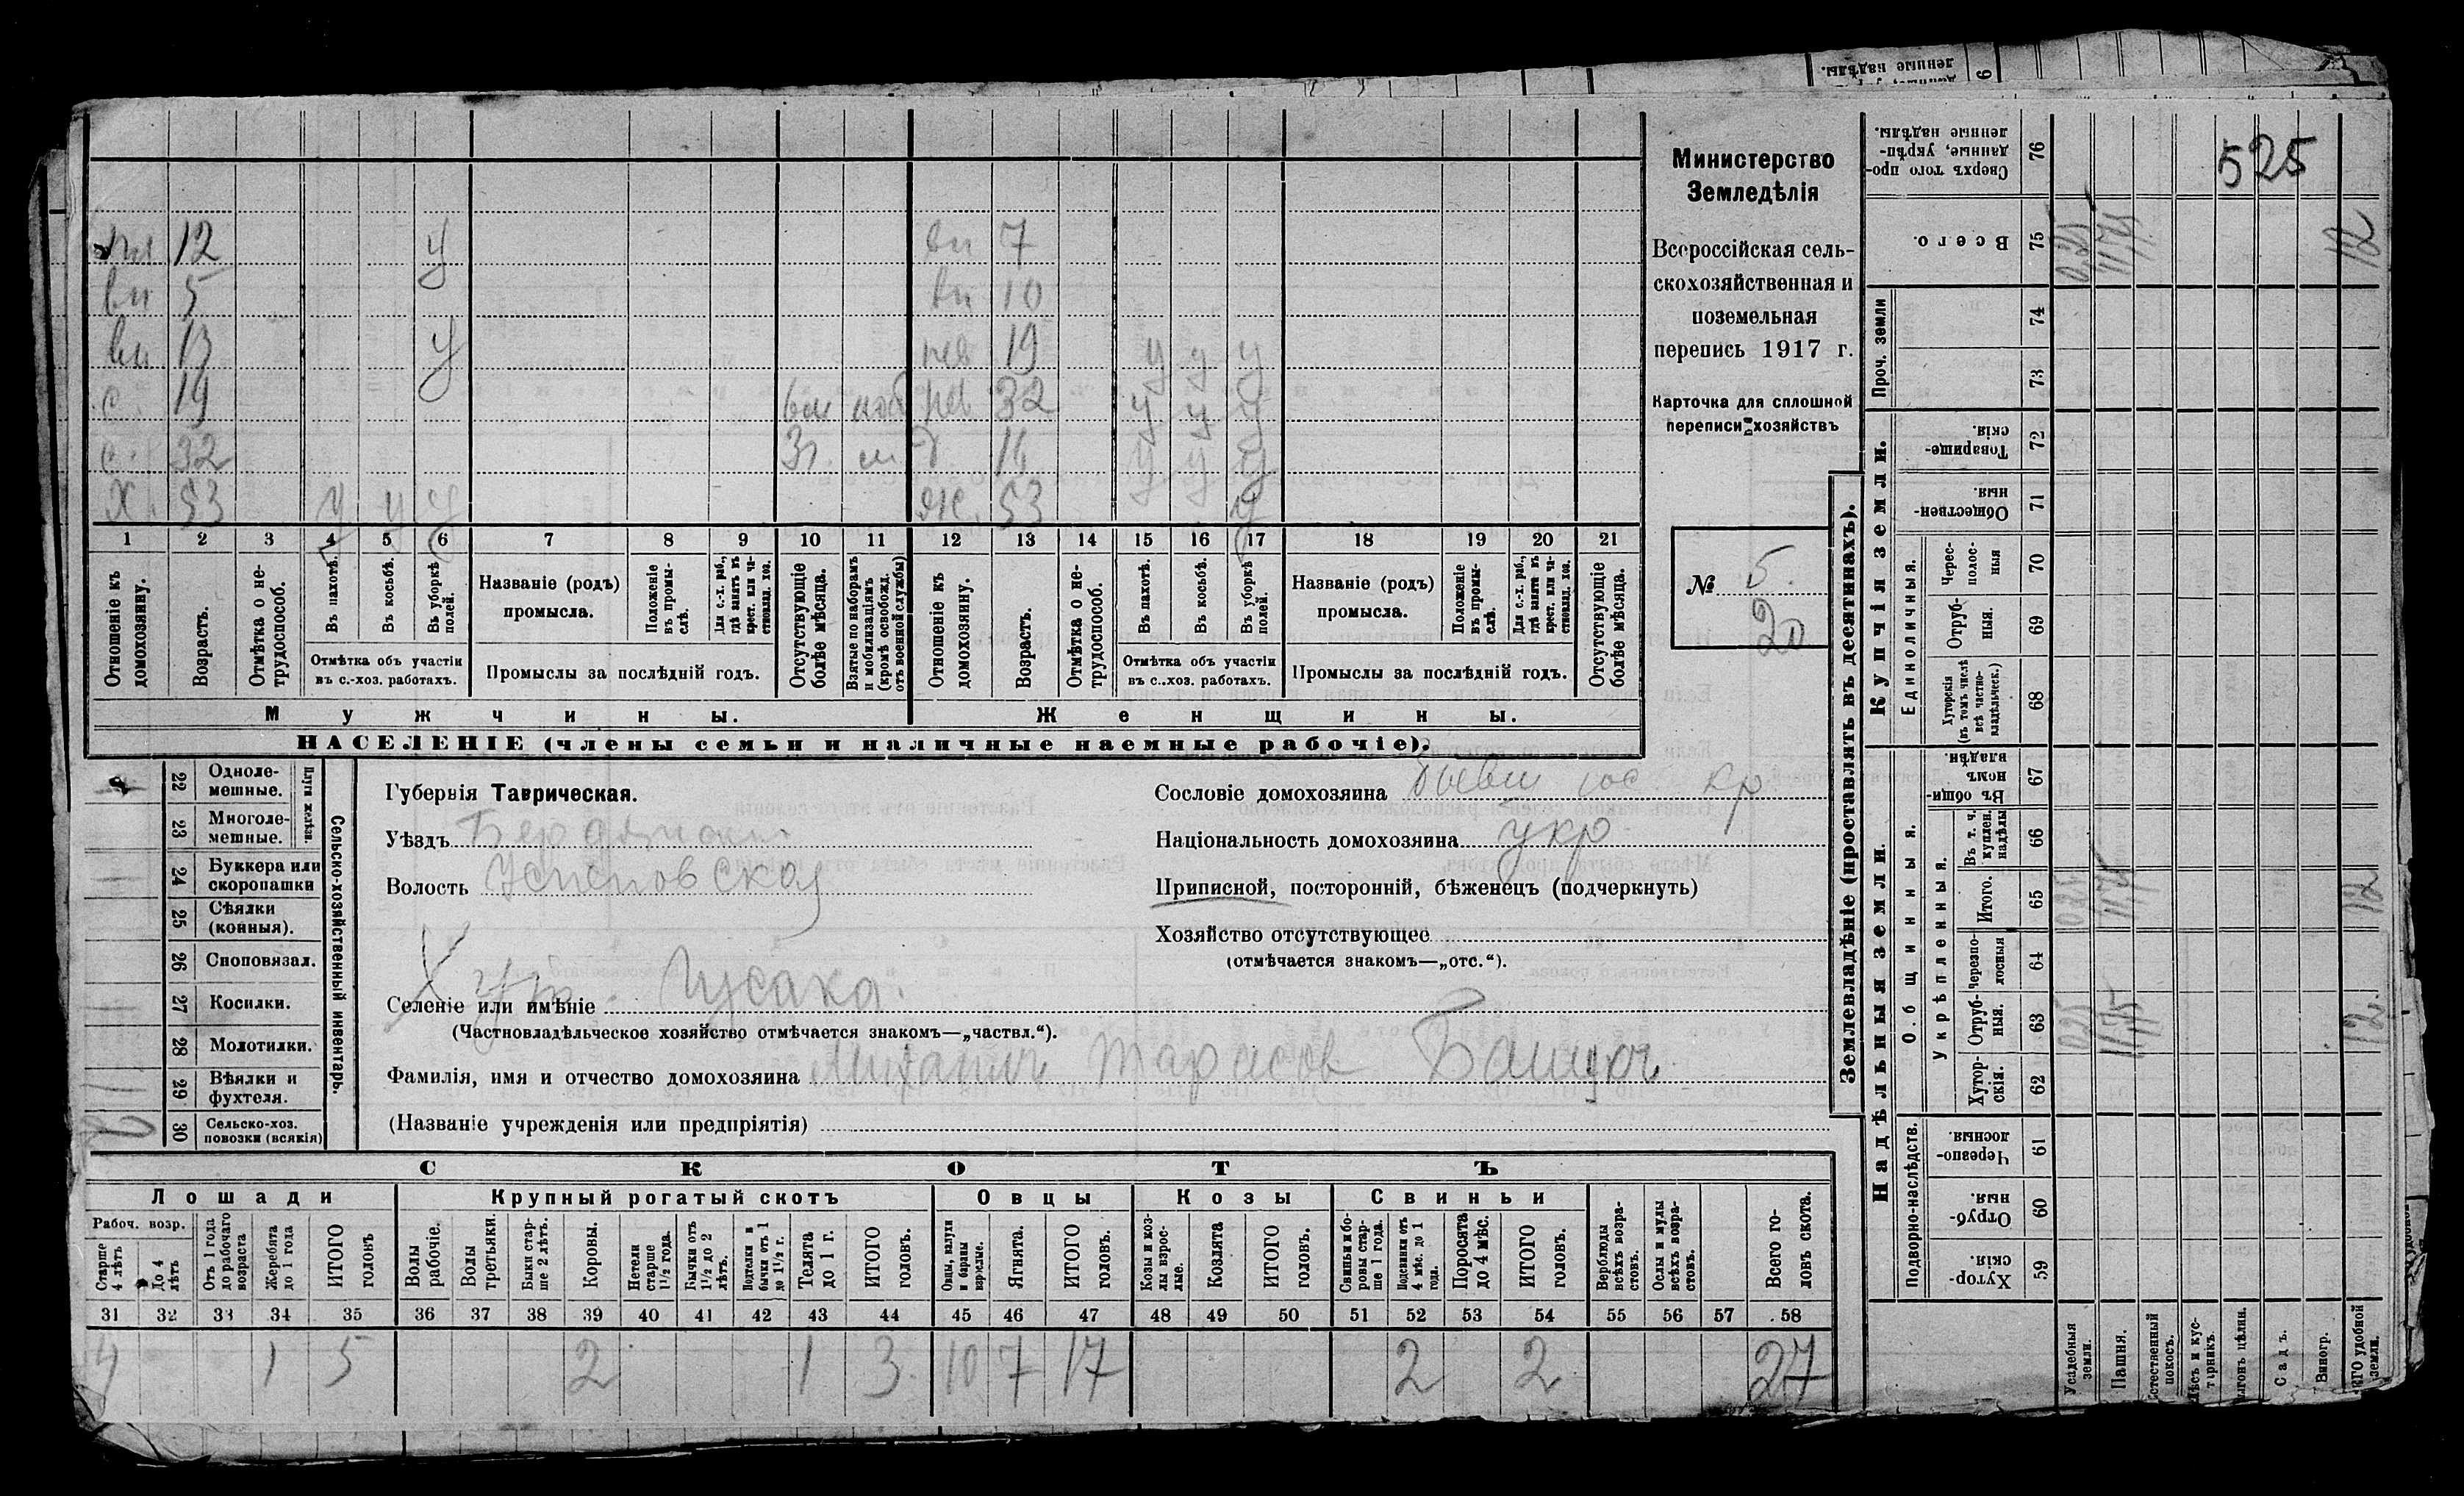 денные надѣлы.
525
вн 12 у вн 7
вн 5 вн 10
вн 13 у нев 19 у у у
с. 19 нев 32 у у у
с. 32 3г. д. 16 у у у
Х. 53 у у у ж. 53 у
1 2 3 4 5 6 7 8 9 10 11 12 13 14 15 16 17 18 19 20 21
Отношеніе къ домохозяину.
Возрастъ.
Отмѣтка о нетрудоспособ.
Въ пахотѣ.
Въ косьбѣ.
Въ уборкѣ полей.
Отмѣтка объ участіи
въ с.-хоз. работахъ.
Названіе (родъ)
промысла.
Положеніе въ промыслѣ.
Для с.-х. раб., гдѣ занятъ въ крест. или частновлад. хоз.
Промыслы за послѣдній годъ.
Отсутствующіе болѣе мѣсяца.
Взятые по наборамъ и мобилизаціямъ (кромѣ освобожд. отъ военной службы)
Отношеніе къ домохозяину.
Возрастъ.
Отмѣтка о нетрудоспособ.
Въ пахотѣ.
Въ косьбѣ.
Въ уборкѣ полей.
Отмѣтка объ участіи
въ с.-хоз. работахъ.
Названіе (родъ)
промысла.
Положеніе въ промыслѣ.
Для с.-х. раб., гдѣ занятъ въ крест. или частновлад. хоз.
Промыслы за послѣдній годъ.
Отсутствующіе болѣе мѣсяца.
Мужчины. Женщины.
НАСЕЛЕНІЕ (члены семьи и наличные наемные рабочіе).
Министерство
Земледѣлія
Всероссійская сель-
скохозяйственная и
поземельная
перепись 1917 г.
Карточка для сплошной
переписи хозяйствъ
№ 5.
20
22 Одноле-
мешные.
23 Многоле-
мешные.
Плуги желѣзн.
24 Буккера или
скоропашки
25 Сѣялки
(конныя).
26 Сноповязал.
27 Косилки.
28 Молотилки.
29 Вѣялки и
фухтеля.
30 Сельско-хоз.
повозки (всякія)
Сельско-хозяйственный инвентарь.
Губернія Таврическая.
Уѣздъ Бердянскій
Волость Успеновская
Хут. Гусака.
Селеніе или имѣніе
(Частновладѣльческое хозяйство отмѣчается знакомъ—„частвл.“).
Фамилія, имя и отчество домохозяина Михаилъ Тарасов
(Названіе учрежденія или предпріятія)
Сословіе домохозяина бывш гос. кр
Національность домохозяина укр
Приписной, посторонній, бѣженецъ (подчеркнуть)
Хозяйство отсутствующее
(отмѣчается знакомъ—„отс.“).
СКОТЪ
Лошади Крупный рогатый скотъ Овцы Козы Свиньи
Рабоч. возр.
Старше 4 лѣтъ
До 4 лѣтъ
Отъ 1 года до рабочаго возраста
Жеребята до 1 года
ИТОГО головъ
Волы рабочіе.
Волы третьяки.
Быки старше 2 лѣтъ.
Коровы.
Нетели старше 1½ года.
Бычки отъ 1½ до 2 лѣтъ.
Подтелки и бычки отъ 1 до 1½ г.
Телята до 1 г.
ИТОГО головъ.
Овцы, валухи и бараны взрослые.
Ягнята.
ИТОГО головъ.
Козы и козлы взрослые.
Козлята
ИТОГО головъ.
Свиньи и боровы старше 1 года.
Подсвинки отъ 4 мѣс. до 1 года.
Поросята до 4 мѣс.
ИТОГО головъ.
Верблюды всѣхъ возрастовъ.
Ослы и мулы всѣхъ возрастовъ.
Всего головъ скота.
31 32 33 34 35 36 37 38 39 40 41 42 43 44 45 46 47 48 49 50 51 52 53 54 55 56 57 58
4 1 5 2 1 3 10 7 17 2 2 27
Землевладѣніе (проставлять въ десятинахъ).
Надѣльныя земли. Купчія земли. Проч. земли
Подворно-наслѣдств.
Общинныя.
Укрѣпленныя.
Единоличныя.
Хуторскія 59
Отрубныя. 60
Черезполосныя. 61
Хуторскія. 62
Отрубныя. 63 0.25 11,75 12.
Черезполосныя 64
Итого. 65 0.25 11,75 12
Въ т. ч. куплен. надѣлы 66
Въ общинномъ владѣн. 67
Хуторскія (въ томъ числѣ всѣ частновладѣльческ.) 68
Отрубныя. 69
Чересполосныя 70
Общественныя. 71
Товарищескія. 72
73
74
Всего. 75 0,25 11,75 12
Сверхъ того проданные, укрѣпленные надѣлы. 76
Усадебныя земли.
Пашня.
Естественный покосъ.
Лѣсъ и кустарникъ.
Выгонъ цѣлин.
Садъ.
Виногр.
ИТОГО удобной земли.